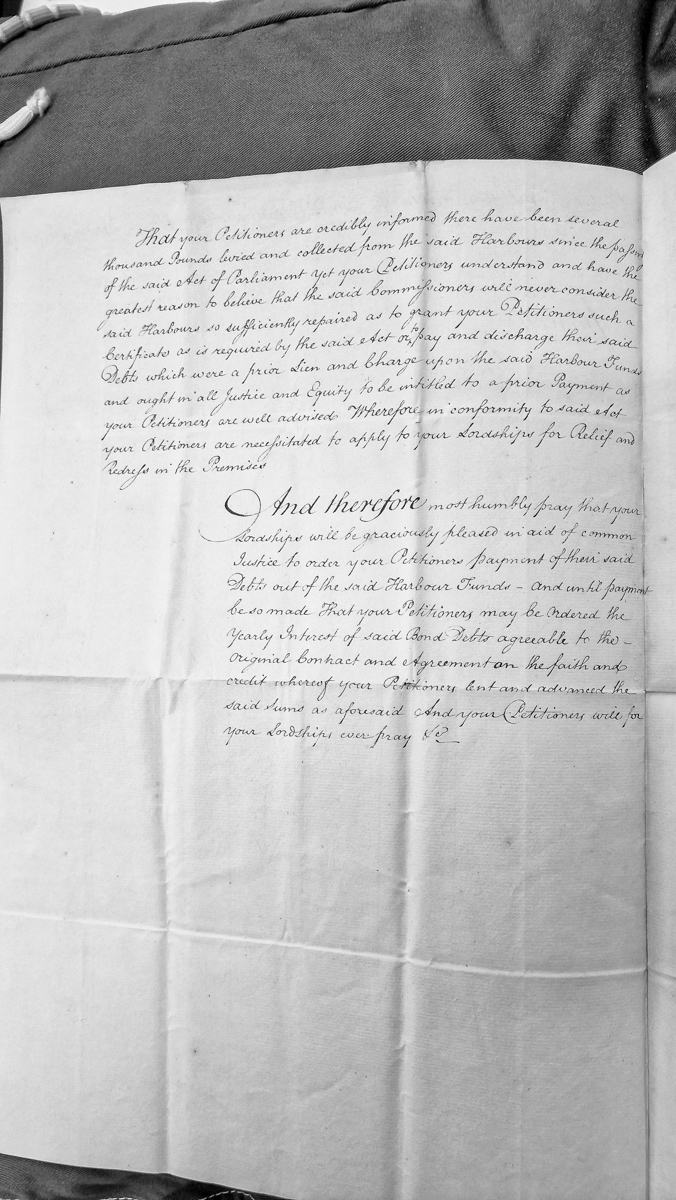 That your Petitioners are credibly informed there have been several
thousand Pounds levied and collected from the said Harbours since the passing
of the said Act of Parliament yet your Petitioners understand and have the
greatest reason to believe that the said Commissioners will never consider the
said Harbours so sufficiently repaired as to grant your Petitioners such a
Certificate as is required by the said Act or to pay and discharge their said
Debts which were a prior Lien and Charge upon the said Harbour Funds
and ought in all Justice and Equity to be intitled to a prior Payment as
your Petitioners are well advised Wherefore in conformity to said Act
your Petitioners are necessitated to apply to your Lordships for Relief and
Redress in the Premises
And therefore most humbly pray that your
Lordships will be graciously pleased in aid of common
Justice to order your Petitioners payment of their said
Debts out of the said Harbour Funds – and until payment
be so made That your Petitioners may be Ordered the
Yearly Interest of said Bond Debts agreeable to the –
original Contract and Agreement on the faith and
credit whereof your Petitioners lent and advanced the
said Sums as aforesaid And your Petitioners will for
your Lordships ever pray &c